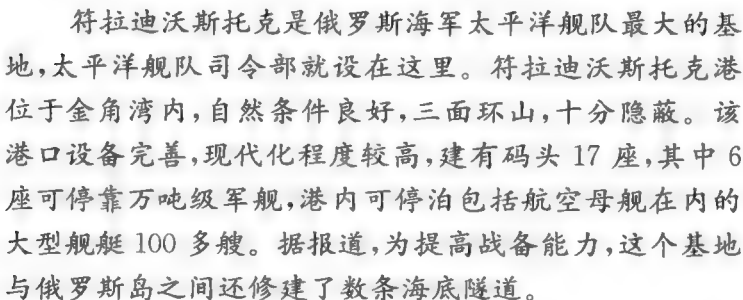 符拉迪沃斯托克是俄罗斯海军太平洋舰队最大的基
地,太平洋舰队司令部就设在这里。符拉迪沃斯托克港
位于金角湾内,自然条件良好,三面环山,十分隐蔽。该
港口设备完善,现代化程度较高,建有码头 17 座,其中 6
座可停靠万吨级军舰,港内可停泊包括航空母舰在内的
大型舰艇 100 多艘。据报道,为提高战备能力,这个基地
与俄罗斯岛之间还修建了数条海底隧道。